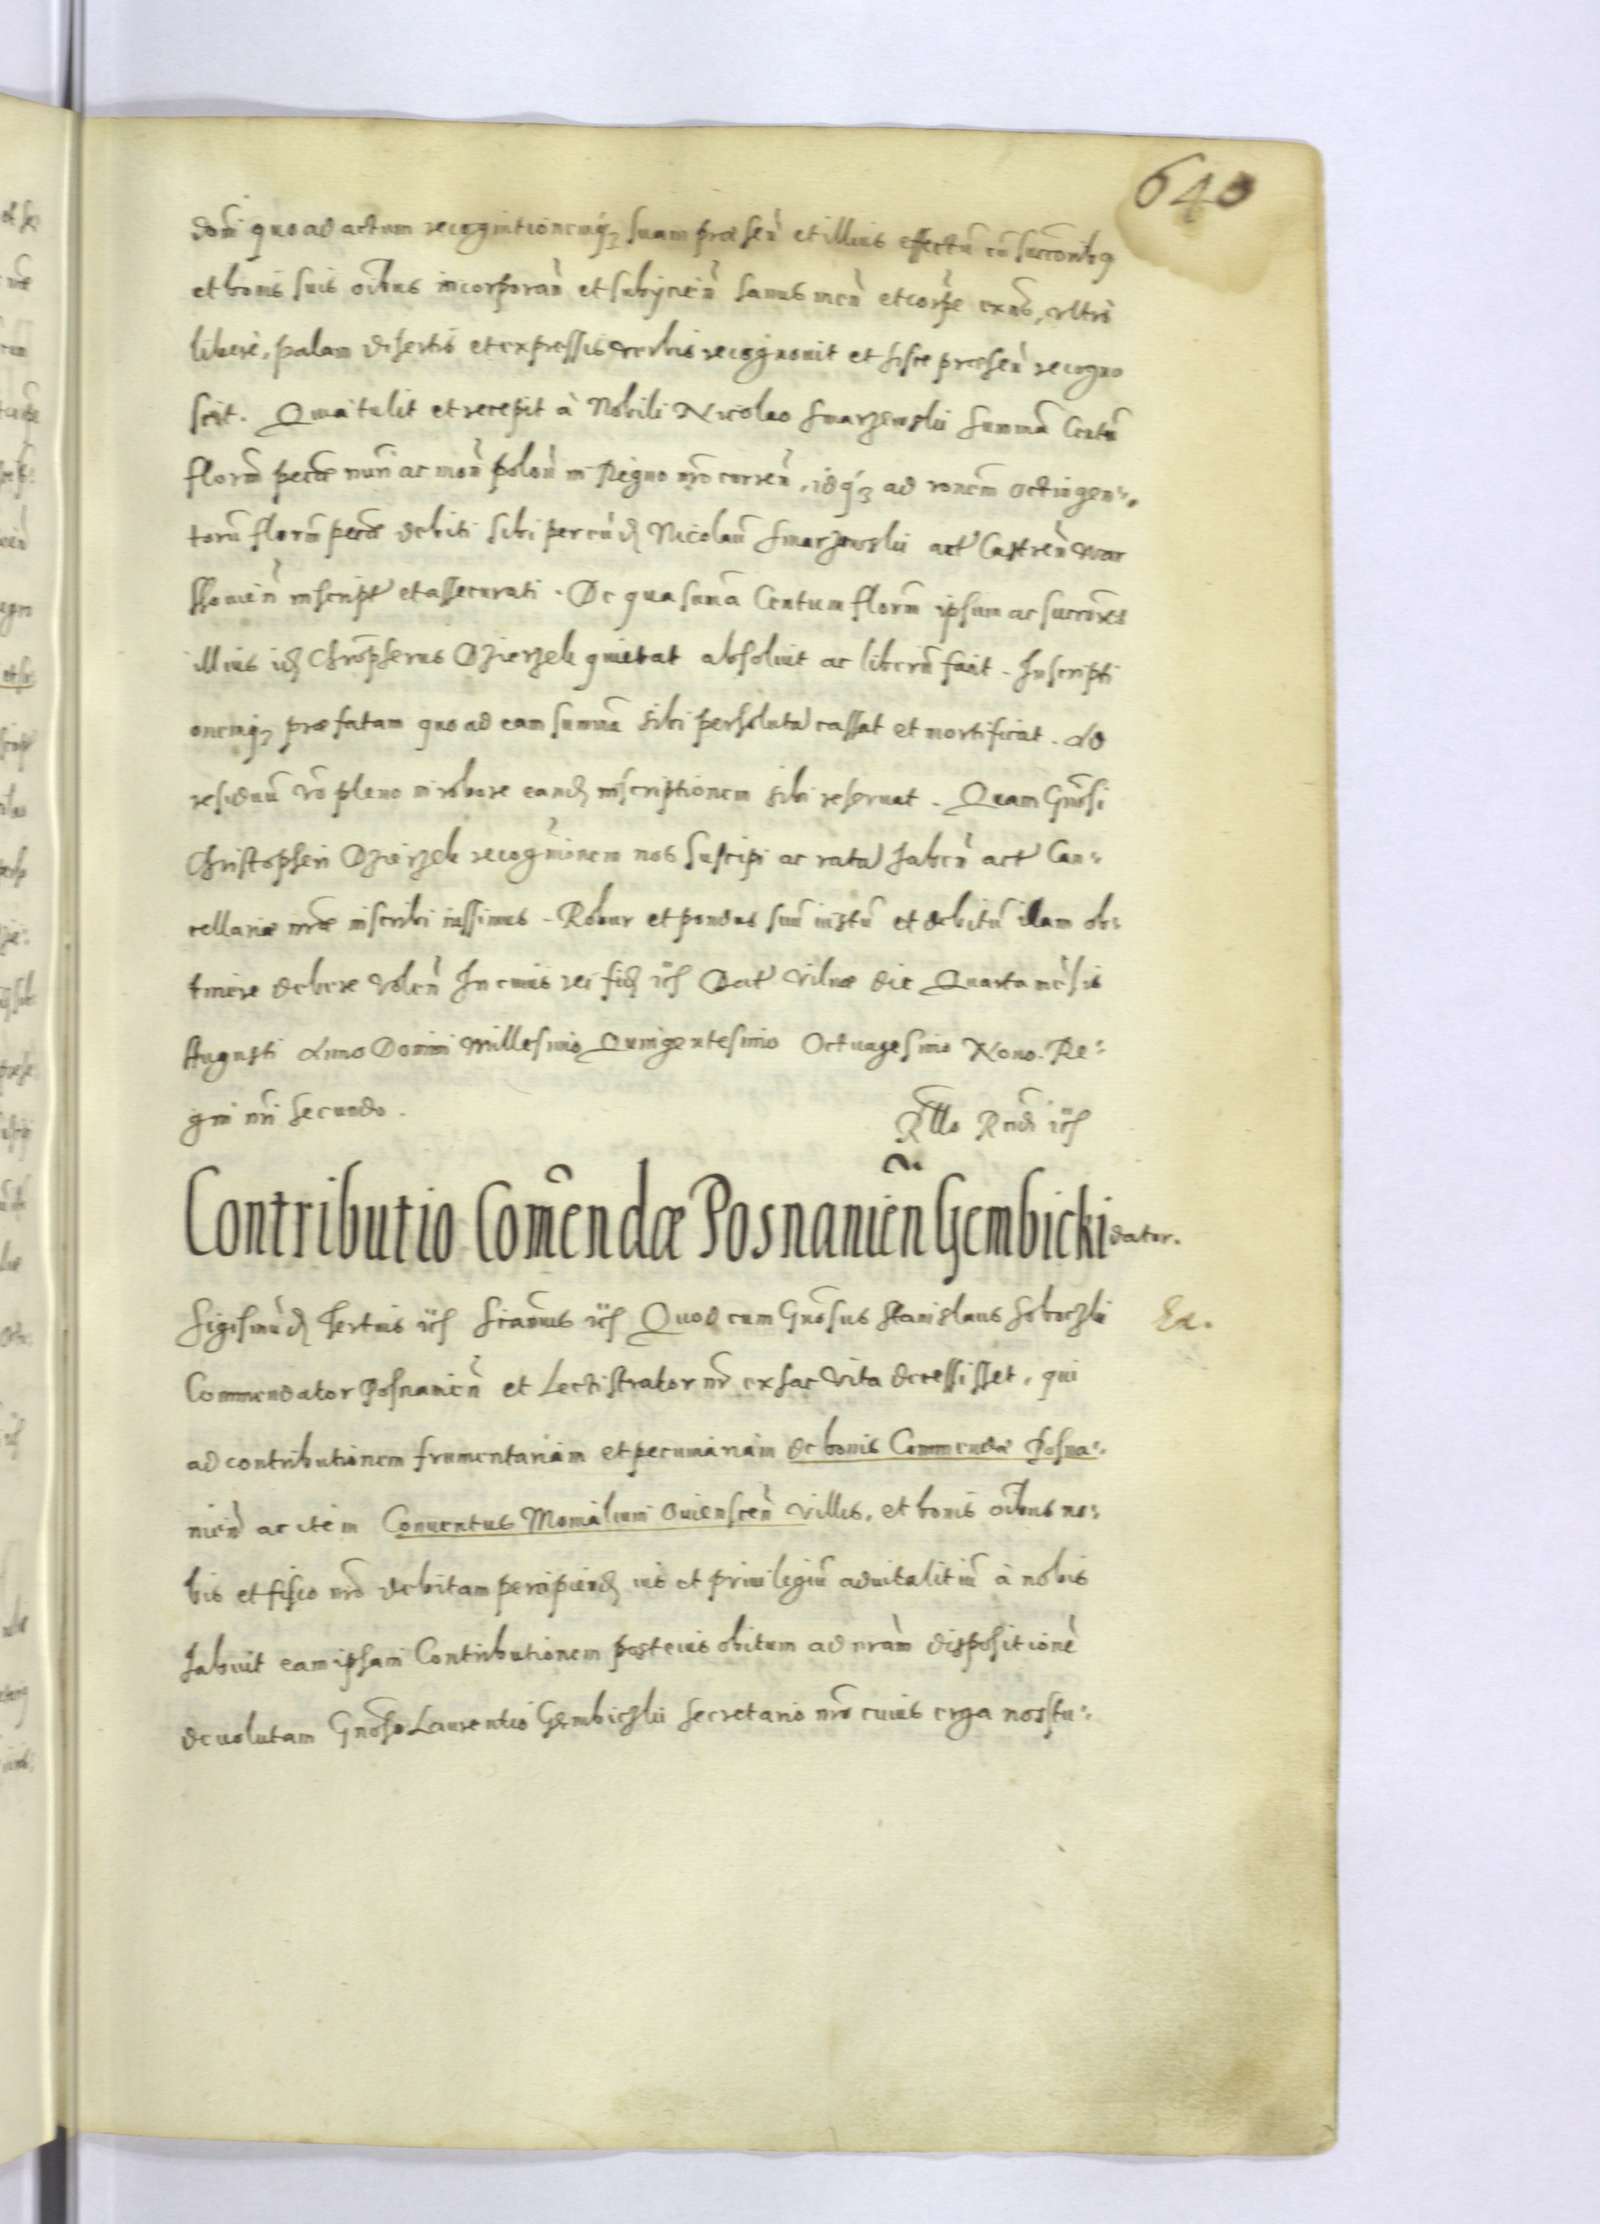 640
domi quo ad actum recognitionemq; suam præsen et illius effectu cu succoribq
et bonis suis oibus incorporan et subijcien sanus men et corpe exns, vltro
libere, palam disertis et expressis verbis recognouit et hisce præsen recogno
scit. Quia tulit et recepit à Nobili Nicolao Smarzewskii summa Centu
florm pecæ nuri ac mon polon in Regno nro curren, idq; ad ronem octingen:
toru florm pecæ debiti sibi per eud Nicolau Smarzewskii act Castren War
shouien inscript et assecurati. De qua suma Centum florm ipsum ac succores
illius id Chropherus Dzierzek quietat absoluit ac liberu facit. Inscripti
onemq; præfatam quo ad eam summa sibi persoluta cassat et mortificat. Ad
residuu vo pleno in robore eand inscriptionem sibi reseruat. Quam Gnosi
Christopheri Dzierzek recognionem nos suscipi ac rata haben act Can:
cellariæ nræ inscribi iussimus. Robur et pondus suu iustu et debitu illam ob:
tinere debere volen In cuius rei fid etc Dat Vilnæ die Quarta mensis
Augusti Anno Domini Millesimo Quingentesimo Octuagesimo Nono. Re:
gni nri secundo.
Rllo Rndi etc
Contributio Comendæ Posnanien Gembicki datur.
Sigismud Tertius etc Sicamus etc Quod cum Gnosus Stanislaus Soboczkii
Ex.
Commendator Posnanien et Lectistrator nr ex hac vita decessisset, qui
ad contributionem frumentariam et pecuniariam de bonis Commendæ Posna:
nien ac item Conuentus Monialium Owienscen villis, et bonis oibus no:
bis et fisco nro debitam percipiend ius et priuilegiu aduitalitiu à nobis
habuit eam ipsam Contributionem post eius obitum ad nram dispositione
deuolutam Gnoso Laurentio Gembiczkii Secretario nro cuius erga nos stu: